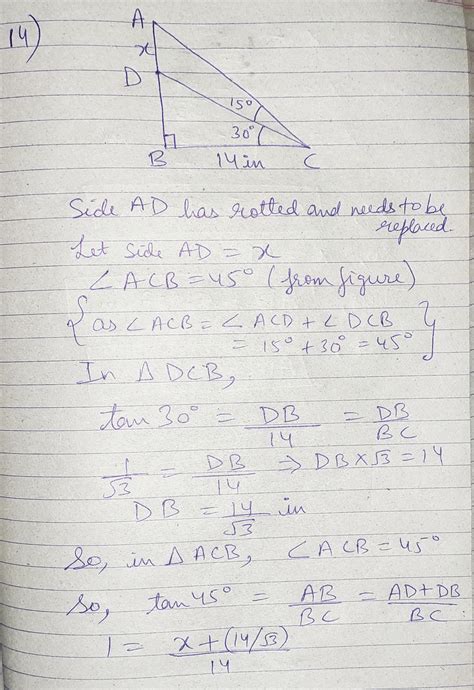 14)
A
x
D
15°
30°
B 14 in C
Side AD has rotted and needs to be
replaced.
Let side AD = x
∠ACB = 45° (from figure)
{as ∠ACB = ∠ACD + ∠DCB
= 15° + 30° = 45°}
In Δ DCB,
tan 30° = DB/14 = DB/BC
1/√3 = DB/14 ⇒ DB × √3 = 14
DB = 14/√3 in
So, in Δ ACB, ∠ACB = 45°
So, tan 45° = AB/BC = AD+DB/BC
1 = x + (14/√3)/14